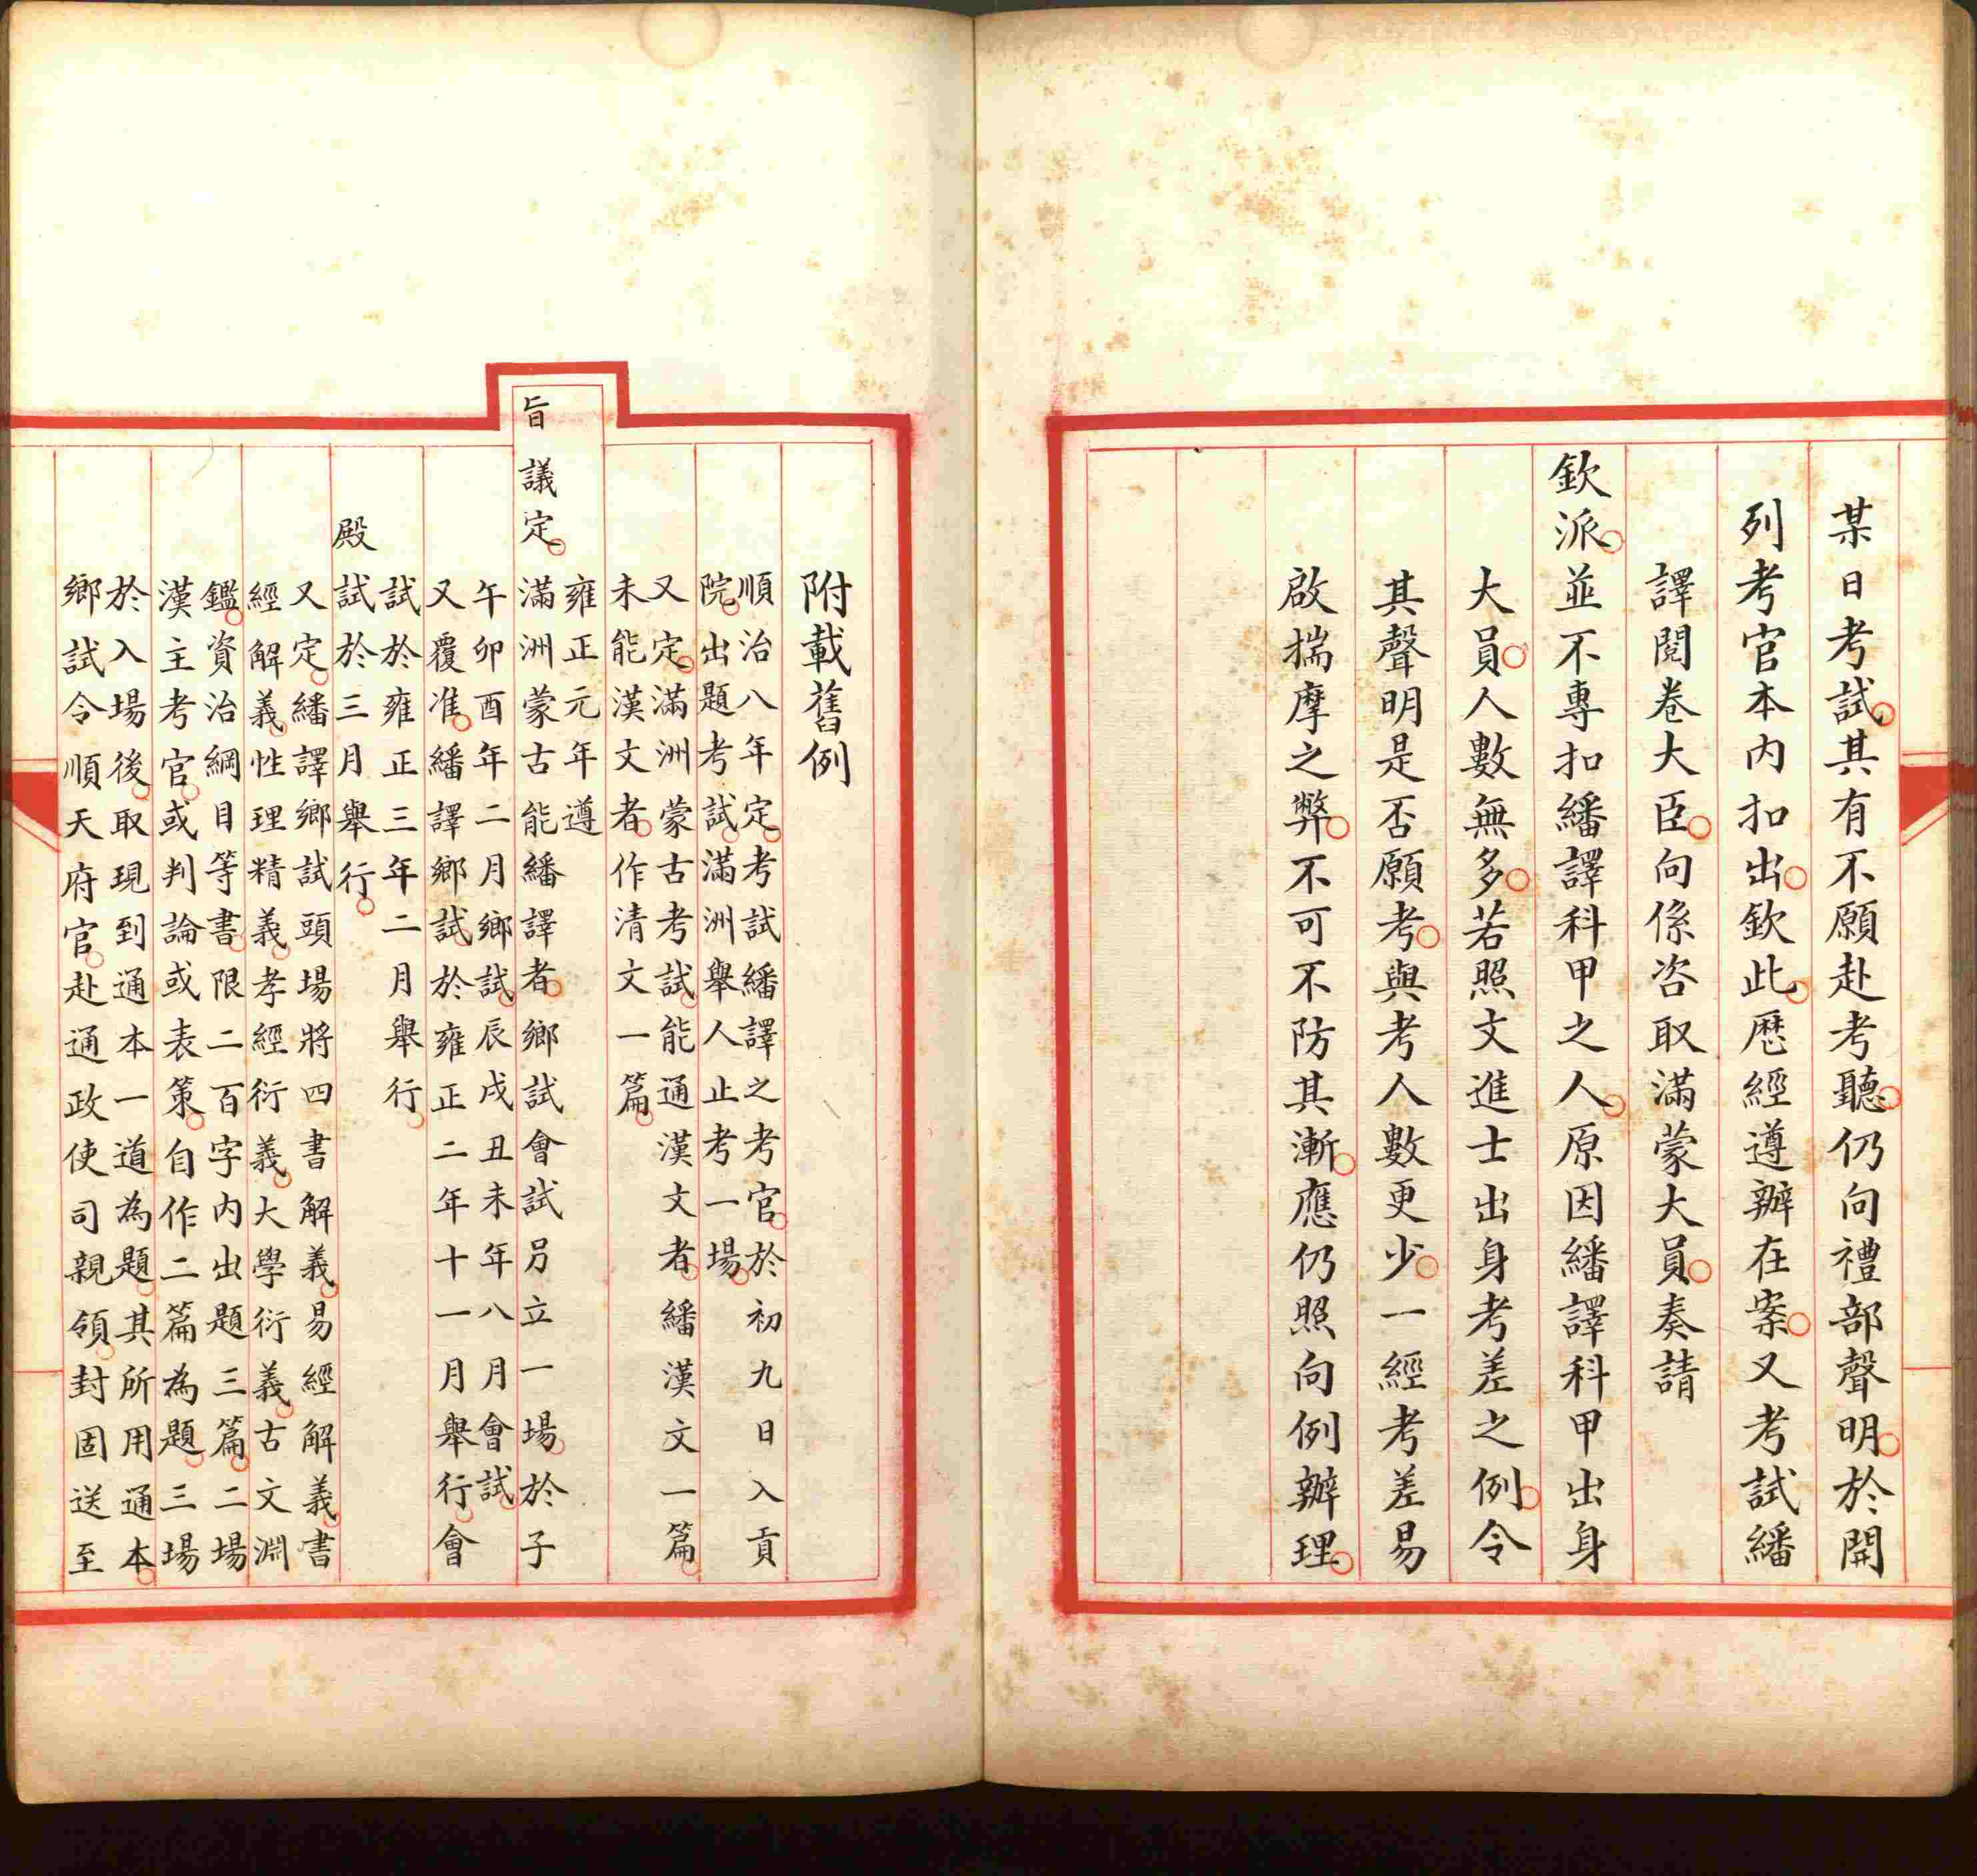 某日考試其有不願赴考聽仍向禮部聲明於開
列考官本內扣出欽此歷經遵辦在案又考試繙
譯閱卷大臣向係咨取滿蒙大員奏請
欽派並不專扣繙譯科甲之人原因繙譯科甲出身
大員人數無多若照文進士出身考差之例令
其聲明是否願考與考人數更少一經考差易
啟揣摩之弊不可不防其漸應仍照向例辦理
附載舊例
順治八年定考試繙譯之考官於初九日入貢
院出題考試滿洲舉人止考一場
又定滿洲蒙古考試能通漢文者繙漢文一篇
未能漢文者作清文一篇
雍正元年遵
旨議定滿洲蒙古能繙譯者鄉試會試另立一場於子
午卯酉年二月鄉試辰戌丑未年八月會試
又覆准繙譯鄉試於雍正二年十一月舉行會
試於雍正三年二月舉行
殿試於三月舉行
又定繙譯鄉試頭場將四書解義易經解義書
經解義性理精義孝經衍義大學衍義古文淵
鑑資治綱目等書限二百字內出題三篇二場
漢主考官或判論或表策自作二篇為題三場
於入場後取現到通本一道為題其所用通本
鄉試令順天府官赴通政使司親領封固送至